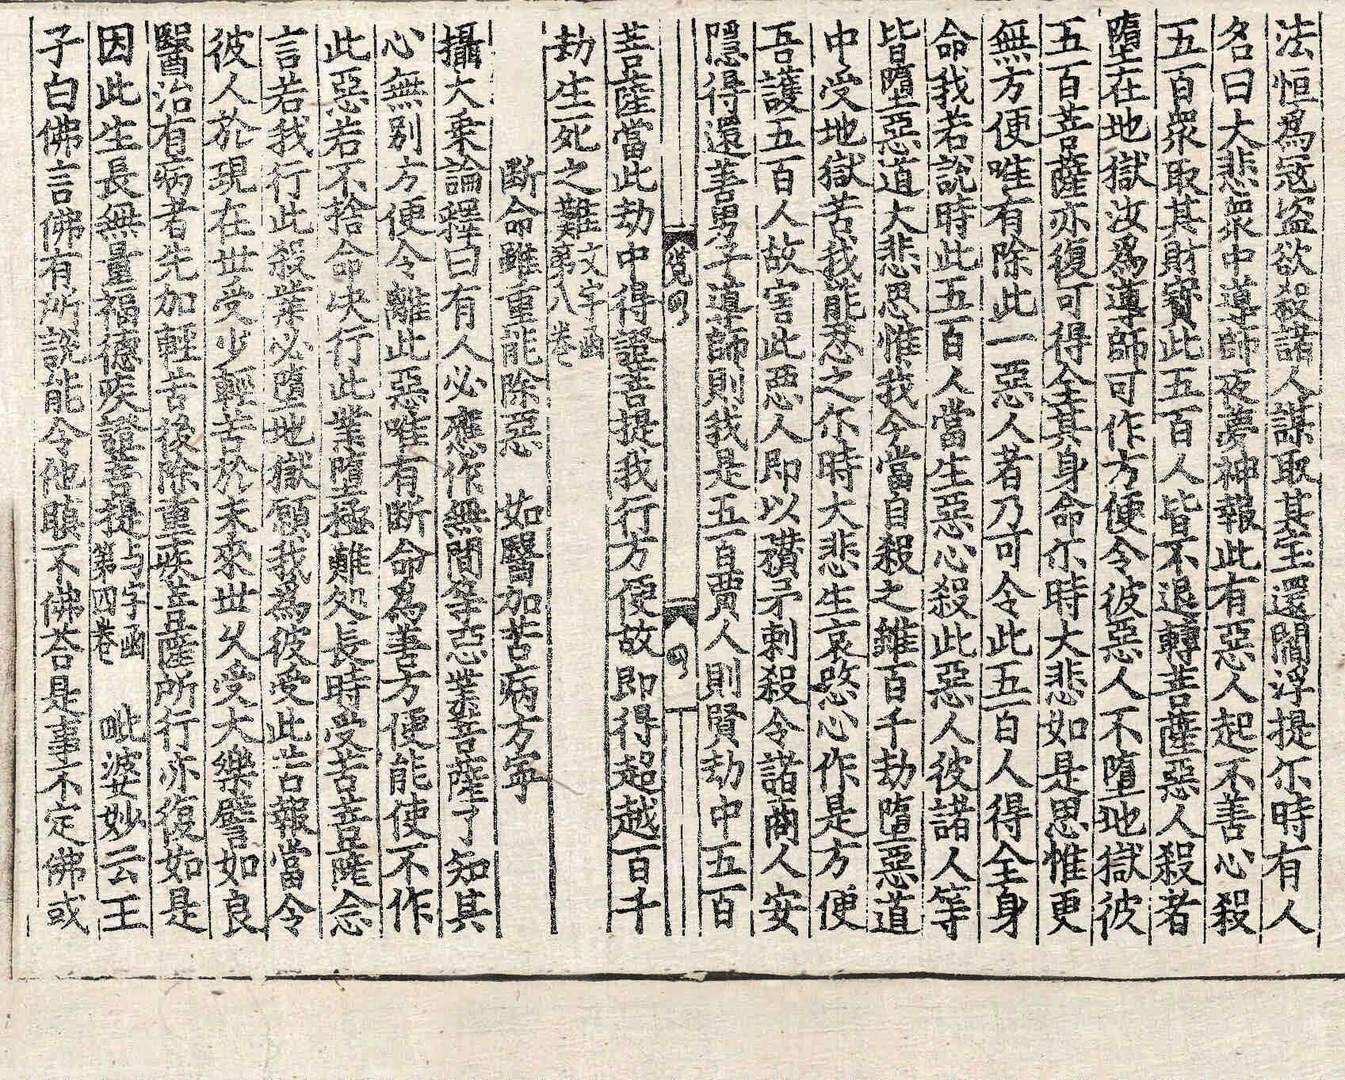 法恒爲寇盜欲殺諸人謀取其宝還閻浮提尒時有人
名曰大悲衆中導師夜夢神報此有惡人起不善心殺
五百衆取其財寳此五百人皆不退轉菩薩惡人殺者
墮在地獄汝爲導師可作方便令彼惡人不墮地獄彼
五百菩薩亦復可得全其身命尒時大悲如是思惟更
無方便唯有除此一惡人者乃可令此五百人得全身
命我若說時此五百人當生惡心殺此惡人彼諸人等
皆墮惡道大悲思惟我今當自殺之雖百千劫墮惡道
中受地獄苦我能忍之尒時大悲生哀愍心作是方便
吾護五百人故害此惡人即以矛刺殺令諸商人安
隱得還善男子導師則我是五百賈人則賢劫中五百
四
菩薩當此劫中得證菩提我行方便故即得超越百千
劫生死之難文字函第八卷
断命雖重能除惡　如醫加苦病方寧
攝大乘論釋曰有人必應作無間等惡業菩薩了知其
心無别方便令離此惡唯有断命爲善方便能使不作
此惡若不捨命决行此業墮極難処長時受苦菩薩念
言若我行此殺業必墮地獄願我爲彼受此苦報當令
彼人於現在世受少輕苦於未來世久受大樂譬如良
醫治有病者先加輕苦後除重疾菩薩所行亦復如是
因此生長無量福德疾證菩提与字函第四卷　毗婆妙云王
子白佛言佛有所說能令他瞋不佛荅是事不定佛或